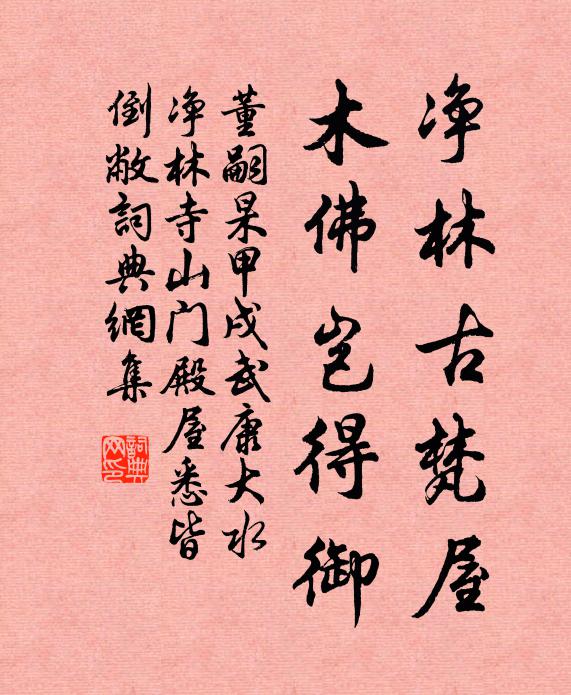 净林古梵屋
木佛岂得御
董嗣杲甲戌武康大水
净林寺山门殿屋悉皆
倒敝詞典網集
詞典网印